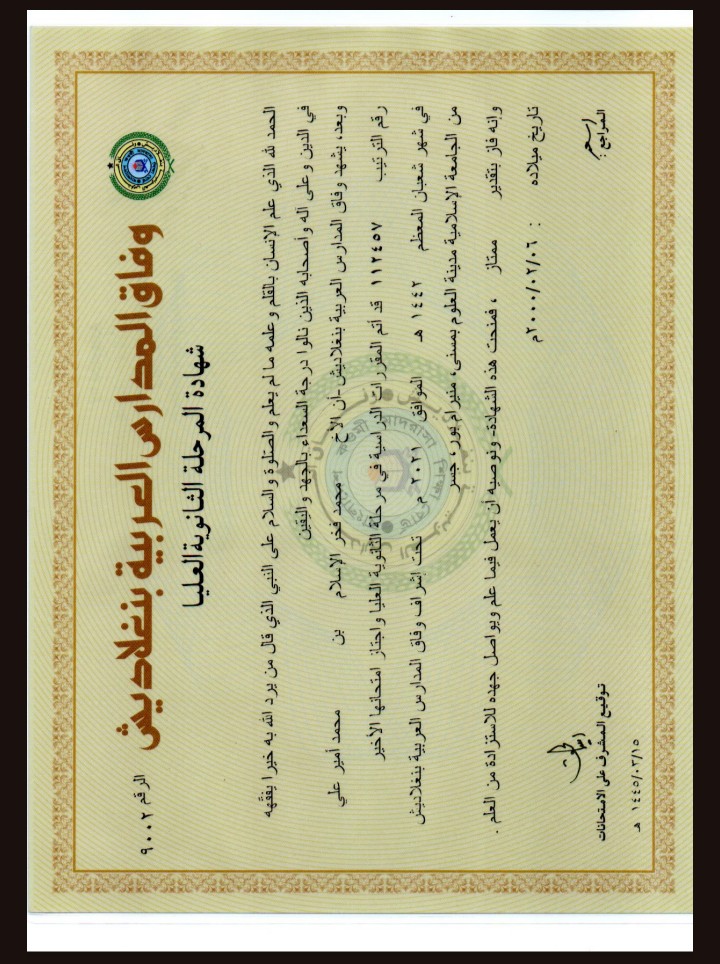 وفاق المدارس العربية بنغلاديش
الرقم ٩٠٠٢
شهادة المرحلة الثانوية العليا
الحمد لله الذي علم الإنسان بالقلم وعلمه ما لم يعلم والصلوة والسلام على النبي الذي قال من يرد الله به خيرا يفقهه
في الدين وعلى آله وأصحابه الذين نالوا درجة السعداء بالجهد واليقين
وبعد، يشهد وفاق المدارس العربية بنغلاديش - أن الأخ محمد فخر الإسلام بن محمد أمير علي
رقم الترتيب ١١٢٤٥٧ قد أتم المقررات الدراسية في مرحلة الثانوية العليا واجتاز امتحانها الأخير
في شهر شعبان المعظم ١٤٤٢ هـ الموافق ٢٠٢١ م تحت اشراف وفاق المدارس العربية بنغلاديش
من الجامعة الإسلامية مدينة العلوم بمسنى، منيرام بور، جسر
وإنه فاز بتقدير ممتاز ، فمنحت هذه الشهادة - ونوصيه أن يعمل فيما علم ويواصل جهده للاستزادة من العلم .
تاريخ ميلاده : ٢٠٠٠/٠٢/٠٦م
المراجع :
توقيع المشرف على الامتحانات
١٤٤٥/٠٣/١٥ هـ